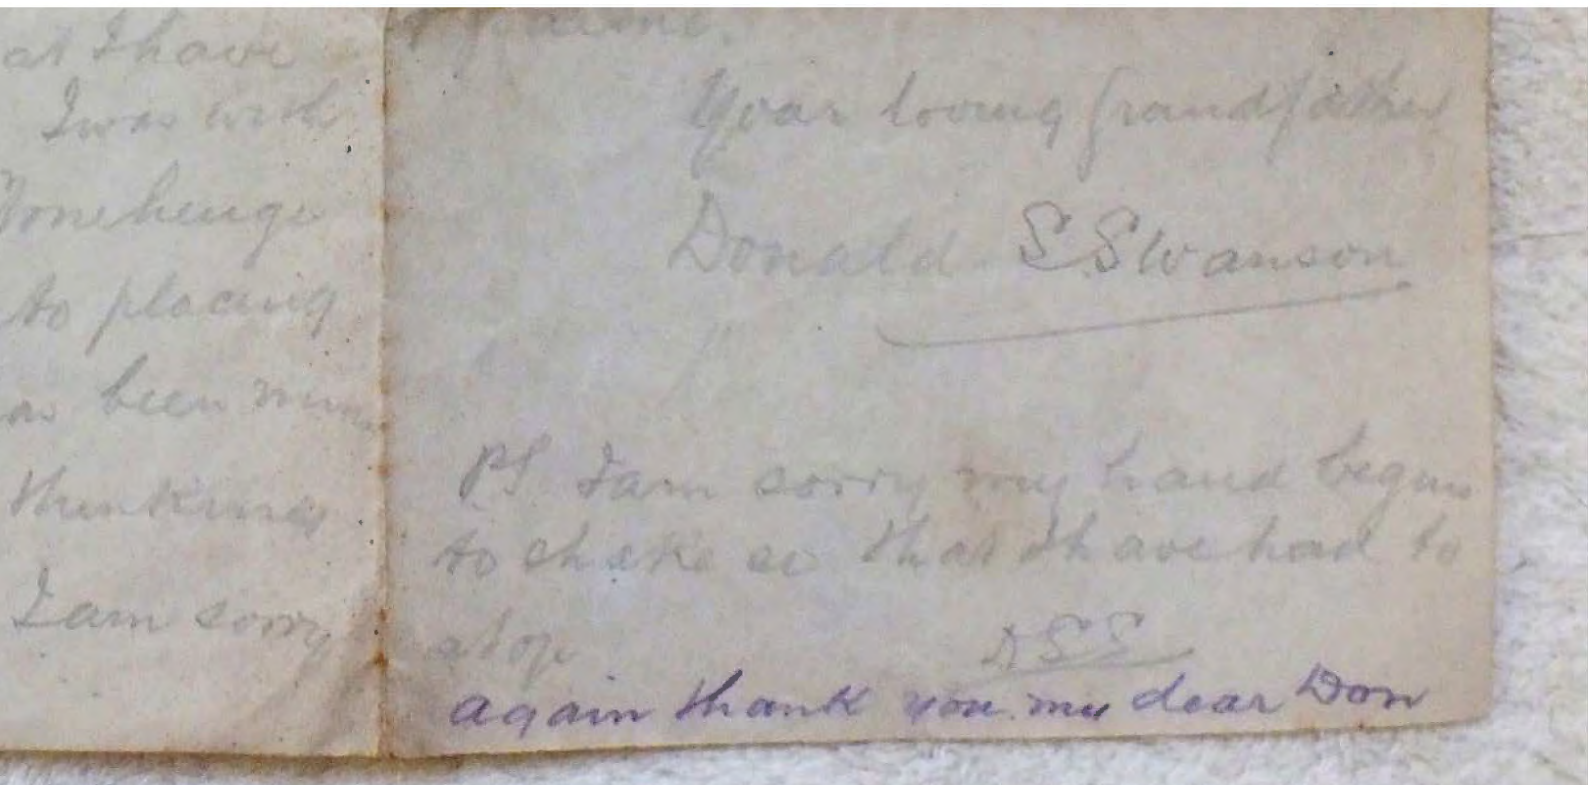 at I have
I was with
Stonehenge
to placing
been
thinking
I am sorry
Your loving Grandfather
Donald S. Swanson
PS I am sorry my hand began
to shake so that I have had to
stop.
DSS
again thank you my dear Don